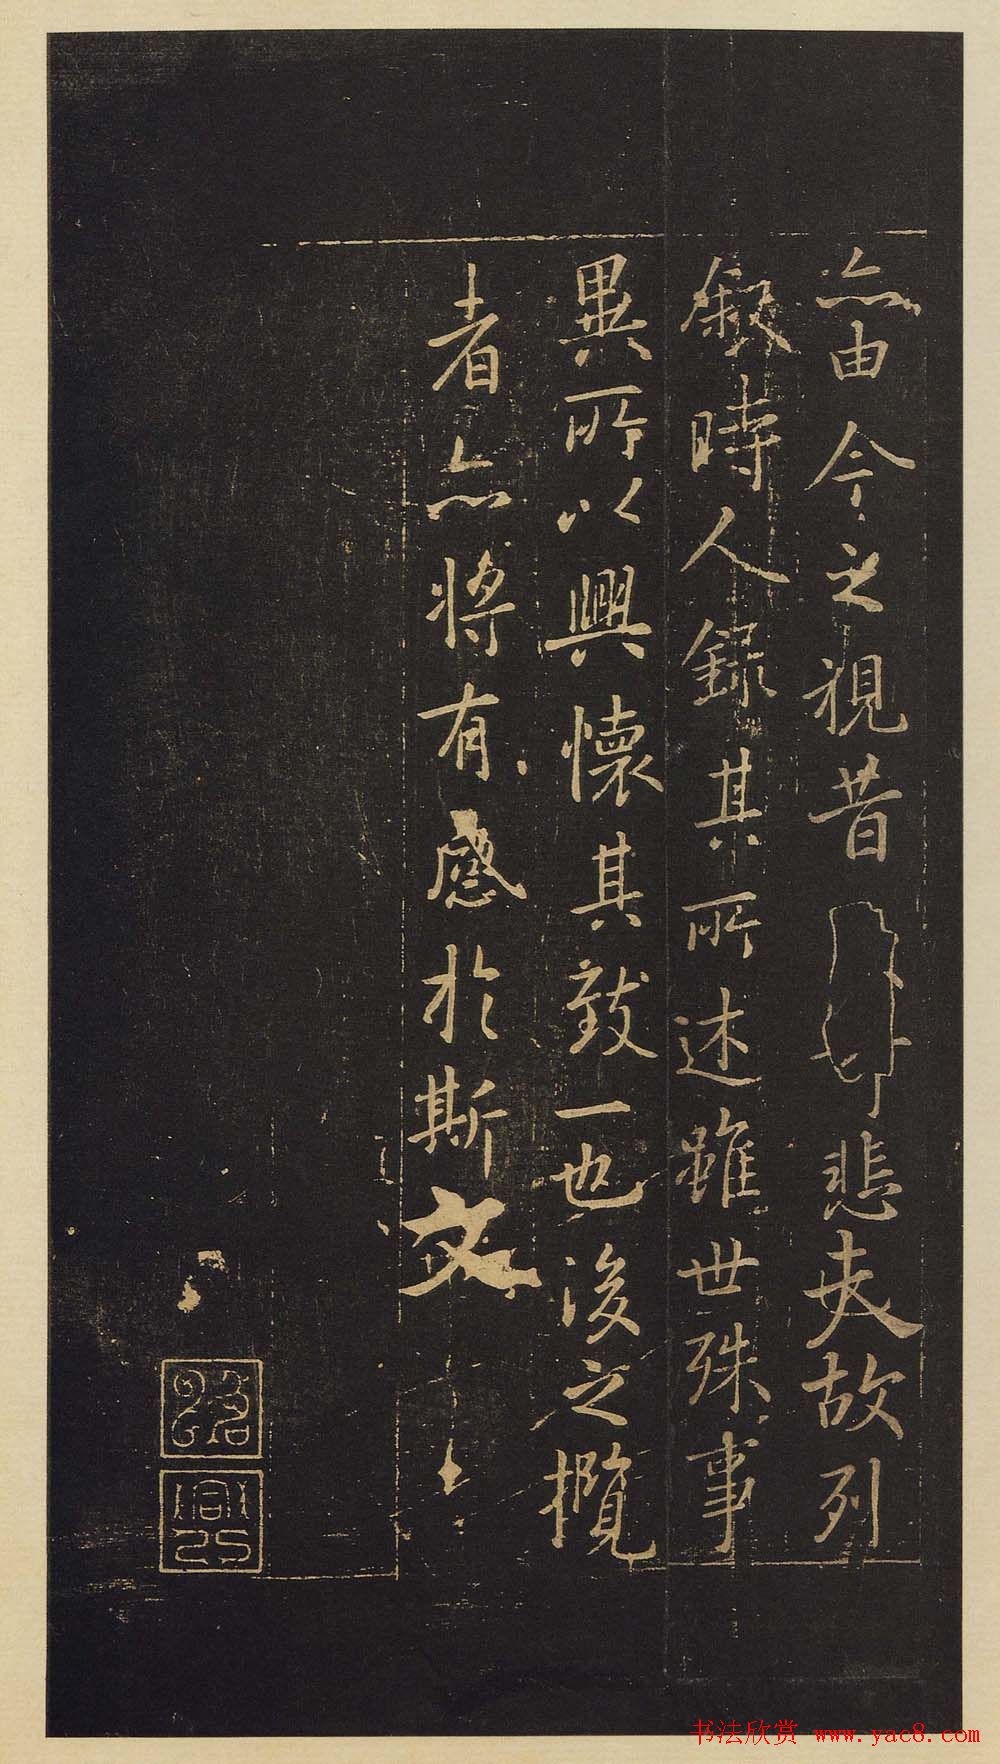 亦由今之視昔悲夫故列
叙時人録其所述雖世殊事
異所以興懷其致一也後之攬
者亦将有感於斯文
书法欣赏 www.yac8.com